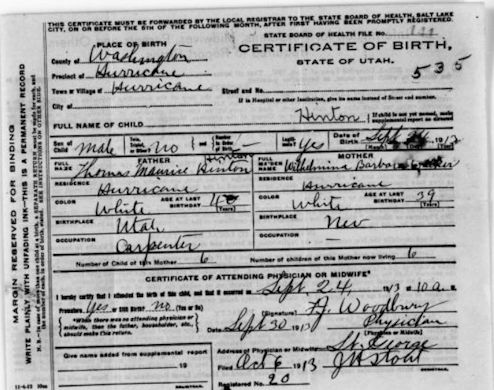 THIS CERTIFICATE MUST BE FORWARDED BY THE LOCAL REGISTRAR TO THE STATE BOARD OF HEALTH, SALT LAKE
CITY, ON OR BEFORE THE 5TH OF THE FOLLOWING MONTH, AFTER FIRST HAVING BEEN PROMPTLY REGISTERED.
STATE BOARD OF HEALTH FILE No.
PLACE OF BIRTH
CERTIFICATE OF BIRTH,
County of Washington
STATE OF UTAH.
Precinct of Hurricane
535
Town or Village of Hurricane
Street and No.
City of
If in Hospital or other Institution, give its name instead of Street and number.
FULL NAME OF CHILD Hinton
If child is not yet named, make supplemental report as directed
Sex of Child Male
Twin, Triplet, or Other? No
Number in order of Birth
Legitimate? Yes
Date of Birth Sept 24 1913
(Month) (Day) (Year)
FATHER
MOTHER
FULL NAME Thomas Maurice Hinton
FULL MAIDEN NAME Wilhelmina Barbara
RESIDENCE Hurricane
RESIDENCE Hurricane
COLOR White
AGE AT LAST BIRTHDAY (Years)
COLOR White
AGE AT LAST BIRTHDAY 39 (Years)
BIRTHPLACE Utah
BIRTHPLACE Nev
OCCUPATION Carpenter
OCCUPATION –
Number of Child of this Mother 6
Number of children of this Mother now living 6
CERTIFICATE OF ATTENDING PHYSICIAN OR MIDWIFE*
I hereby certify that I attended the birth of this child, and that it occurred on Sept. 24, 1913 10 a. M.
Premature Yes or Still Birth? no (Yes or No)
(Signature) F. J. Woodbury
*When there was no attending physician or midwife, then the father, householder, etc., should make this return.
Physician
(Physician or Midwife)
Date Sept 30 1913
Address of Physician or Midwife St. George
Give name added from supplemental report
Filed Oct 6 1913 J H Stout
19
REGISTRAR.
Registered No. 20
MARGIN RESERVED FOR BINDING
WRITE PLAINLY WITH UNFADING INK—THIS IS A PERMANENT RECORD